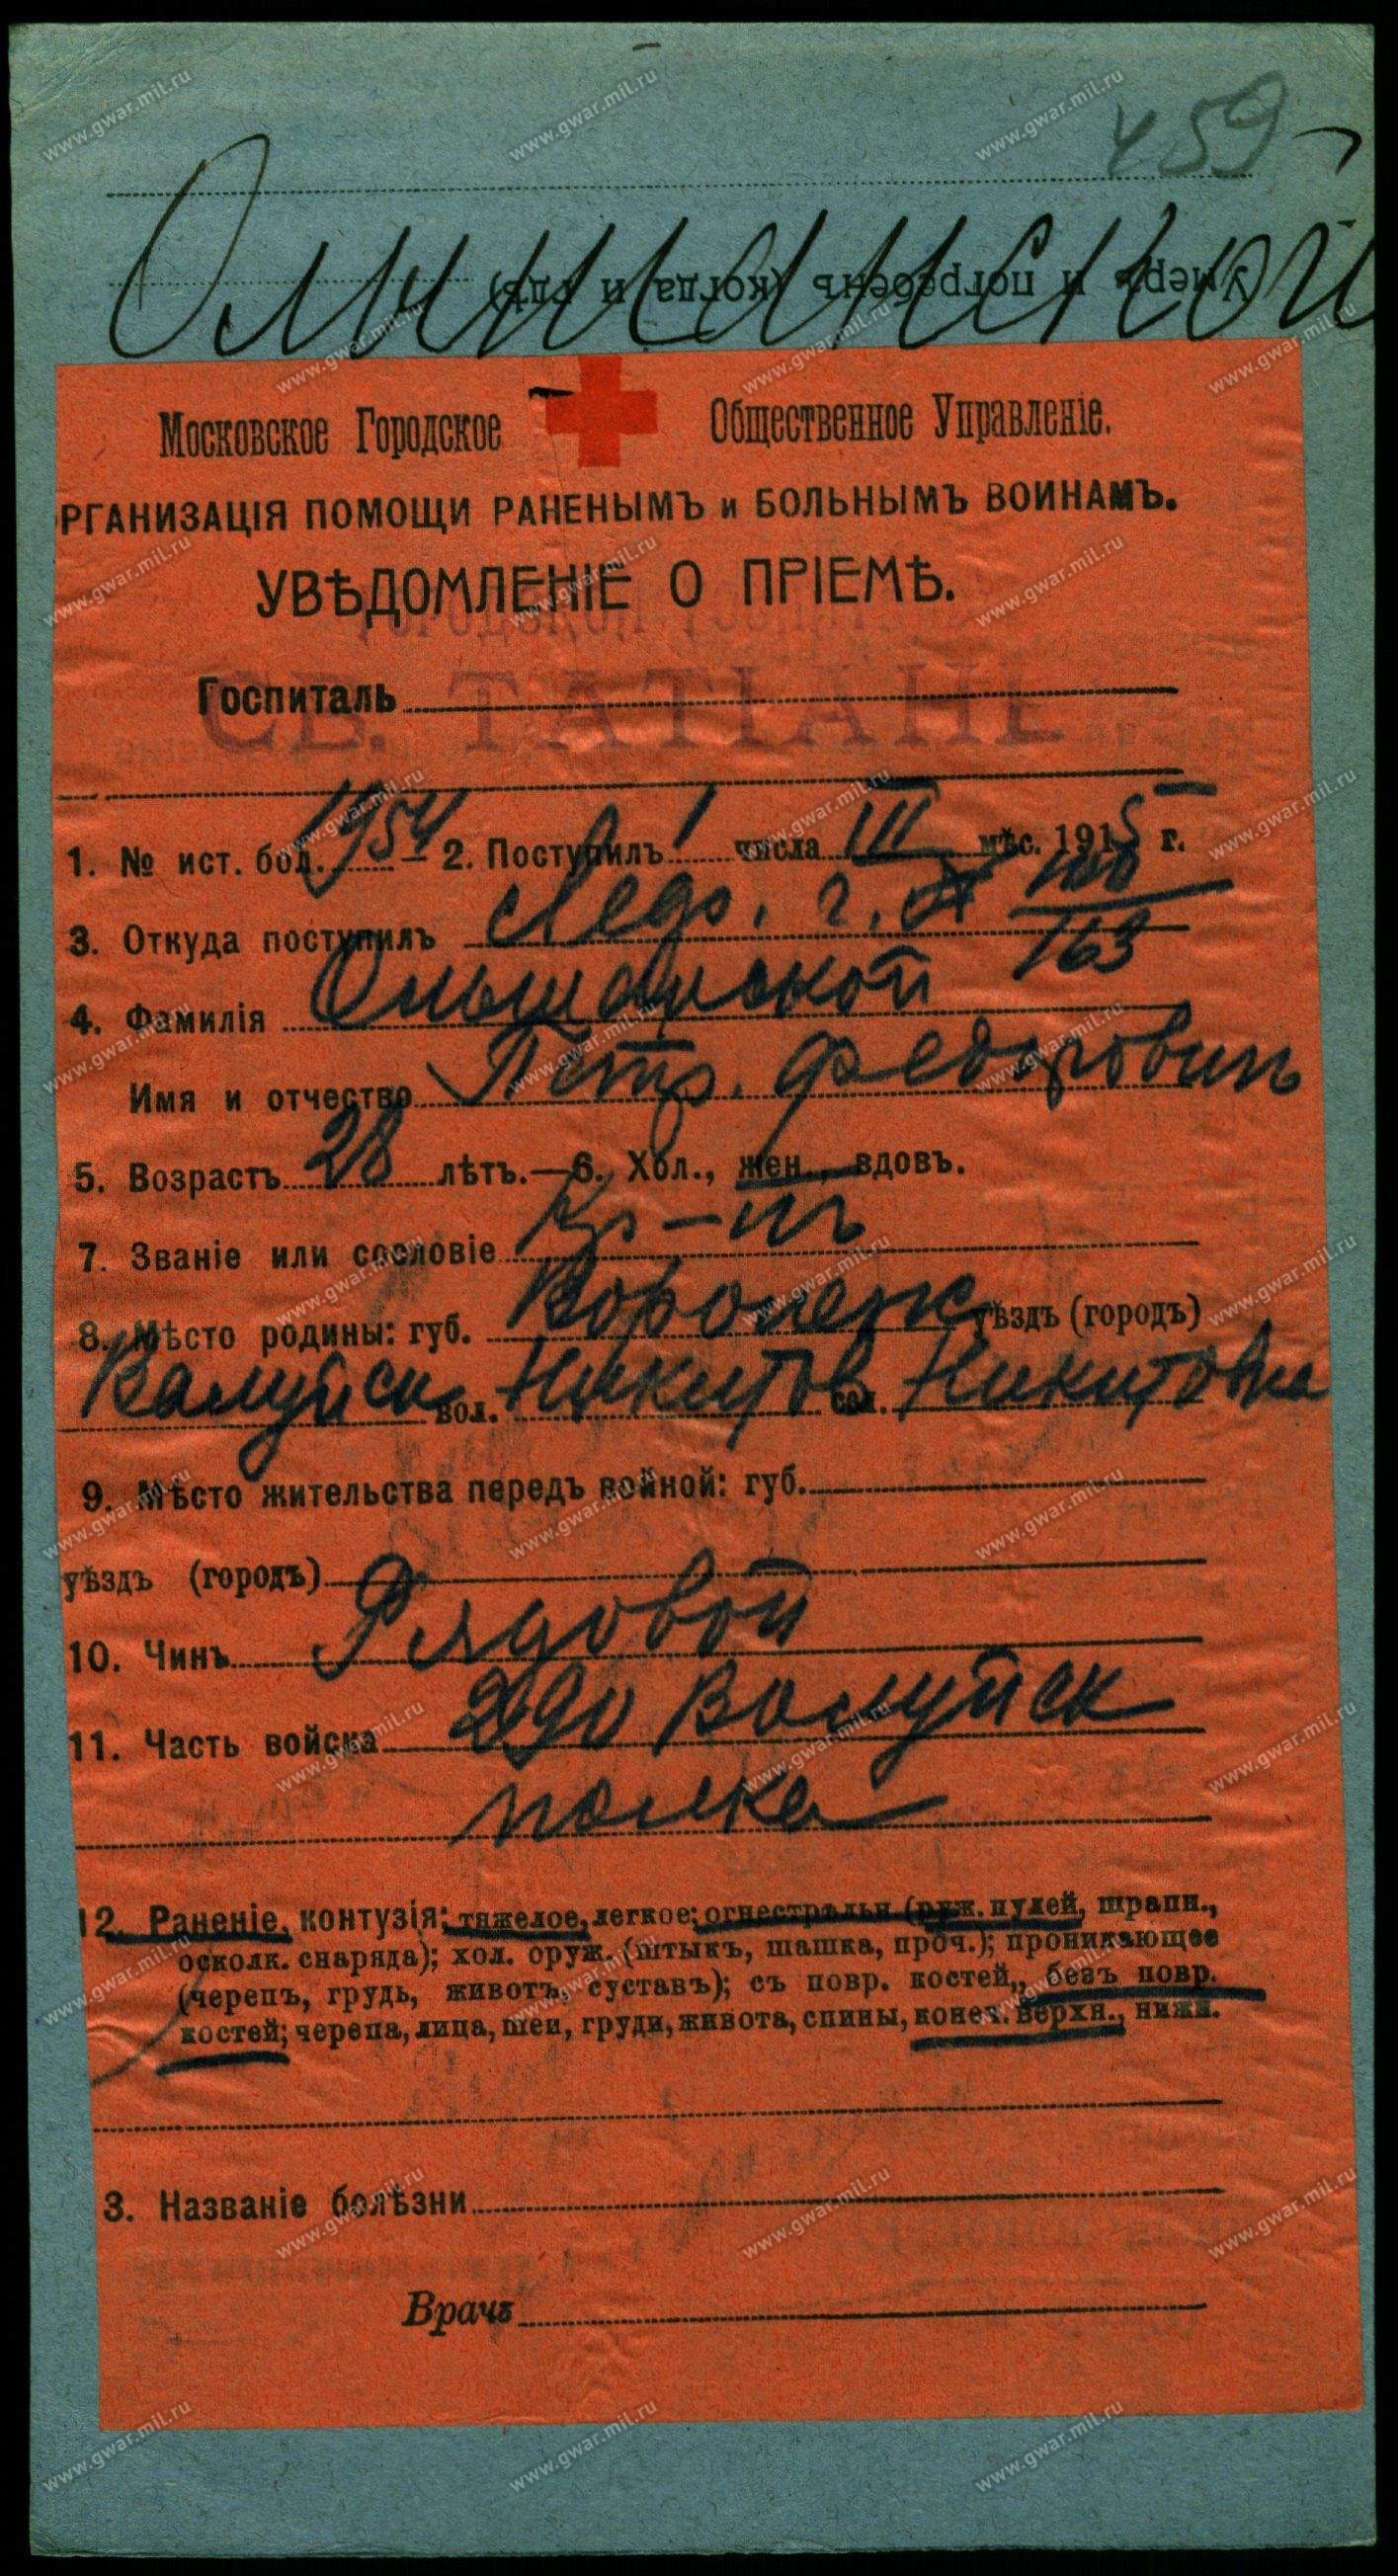 459
Олишанской
Умеръ и погребенъ (когда и гдѣ)
Московское Городское Общественное Управленіе.
ОРГАНИЗАЦІЯ ПОМОЩИ РАНЕНЫМЪ и БОЛЬНЫМЪ ВОИНАМЪ.
УВѢДОМЛЕНІЕ О ПРІЕМѢ.
Госпиталь
СВ. ТАТІАН
1. № ист. бол. 1954 — 2. Поступилъ 1 числа III мѣс. 1915 г.
3. Откуда поступилъ г. 163
4. Фамилія Ольшанской
Имя и отчество Петр. Федоровичъ
5. Возрастъ 28 лѣтъ.—6. Хол., жен., вдовъ.
7. Званіе или сословіе Кр-нъ
8. Мѣсто родины: губ. Воронеж уѣздъ (городъ)
Валуйск вол. Никитов сел. Никитовка
9. Мѣсто жительства передъ войной: губ.
уѣздъ (городъ)
10. Чинъ Рядовой
11. Часть войска 290 Валуйск
полка
12. Раненіе, контузія; тяжелое, легкое; огнестрѣльн. (руж. пулей, шрапн.,
осколк. снаряда); хол. оруж. (штыкъ, шашка, проч.); проникающее
(черепъ, грудь, животъ, суставъ); съ повр. костей, безъ повр.
костей; черепа, лица, шеи, груди, живота, спины, конеч. верхн., нижн.
3. Названіе болѣзни
Врачъ
www.gwar.mil.ru